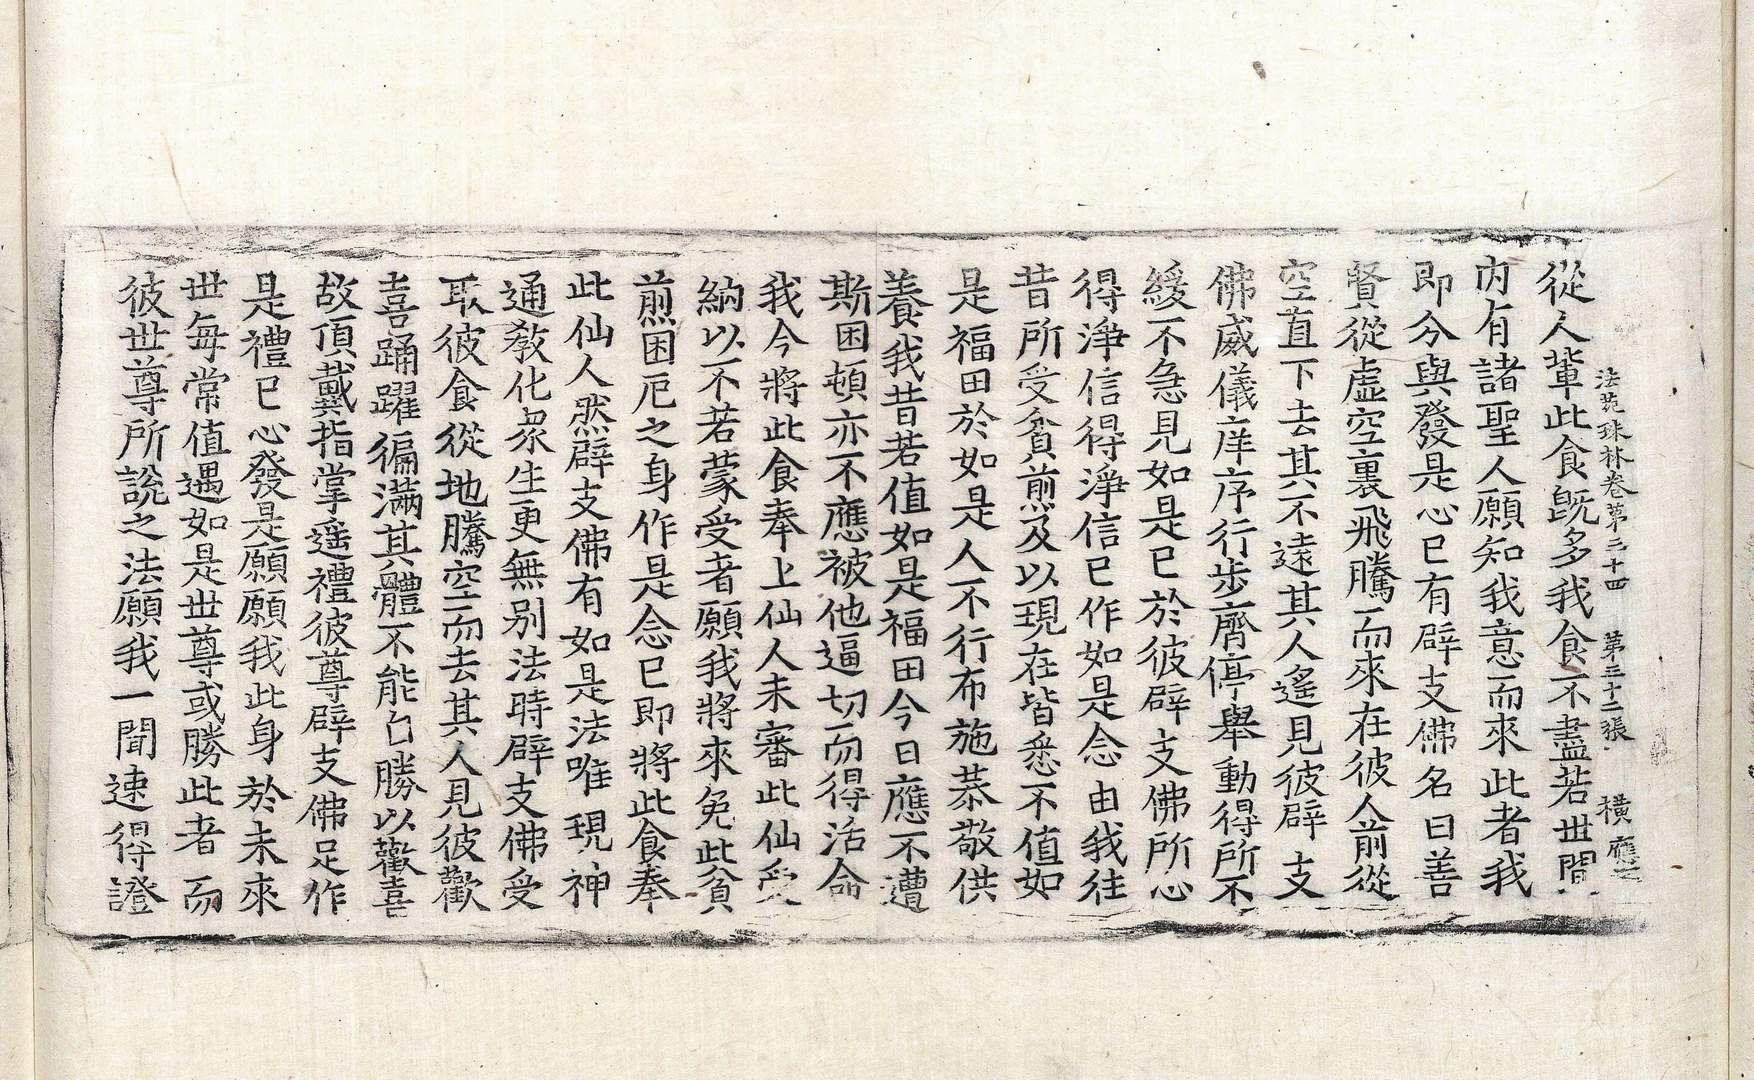 法苑珠林卷第二十四　第三十二張　橫　應之
從人輩此食既多我食不盡若世間
內有諸聖人願知我意而來此者我
即分與發是心已有辟支佛名曰善
賢從虛空裏飛騰而來在彼人前從
空直下去其不遠其人遙見彼辟支
佛威儀庠序行步齊停舉動得所不
緩不急見如是已於彼辟支佛所心
得淨信得淨信已作如是念由我往
昔所受貧煎及以現在皆悉不值如
是福田於如是人不行布施恭敬供
養我昔若值如是福田今日應不遭
斯困頓亦不應被他逼切而得活命
我今將此食奉上仙人未審此仙受
納以不若蒙受者願我將來免此貧
煎困厄之身作是念已即將此食奉
此仙人然辟支佛有如是法唯現神
通教化眾生更無別法時辟支佛受
取彼食從地騰空而去其人見彼歡
喜踊躍徧滿其體不能自勝以歡喜
故頂戴指掌遙禮彼尊辟支佛足作
是禮已心發是願願我此身於未來
世每常值遇如是世尊或勝此者而
彼世尊所說之法願我一聞速得證